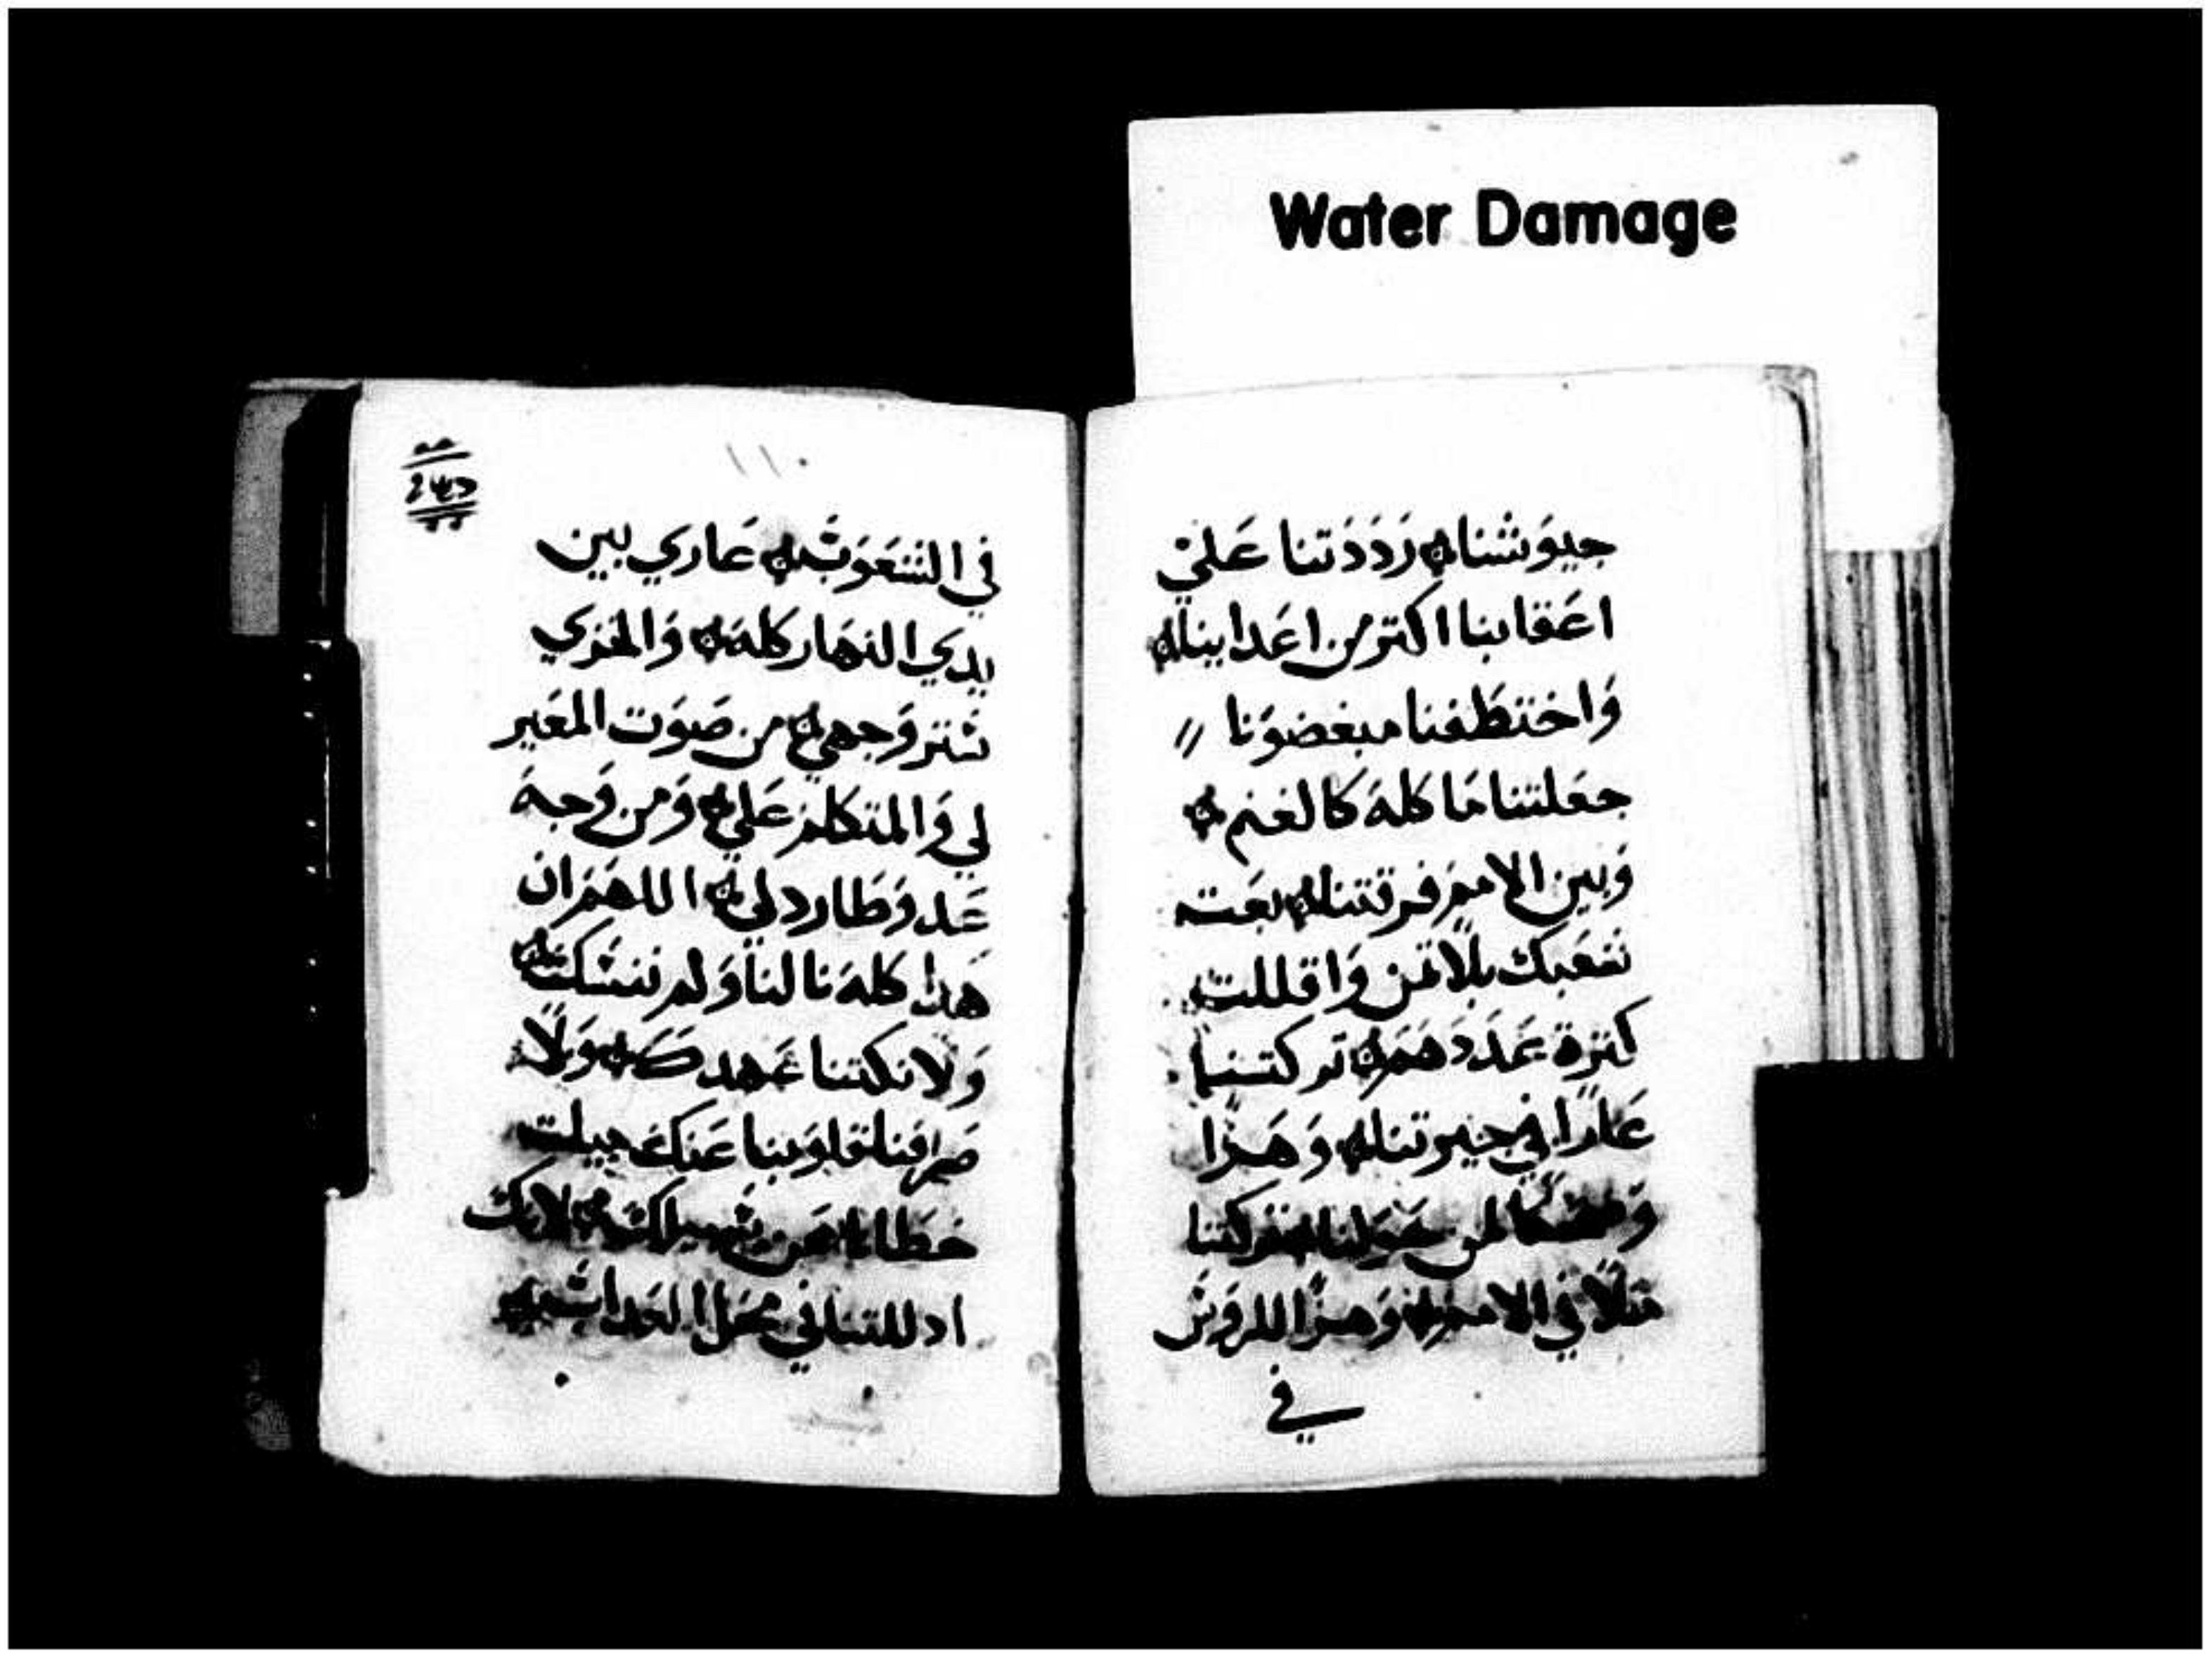 Water Damage
جيوشنا رددتنا علي
اعقابنا اكتر من اعداينا
واختطفنا مبغضونا
جعلتنا ماكله كالغنم
وبين الامم فرقتنا بعت
شعبك بلا تمن واقللت
كترة عددهم تركتنا
عارا في جيرتنا وهزا
لمن حولنا تركتنا
متلا في الامم وهزا للروس
في
١١٠
في الشعوب عاري بين
يدي النهار كله والخزي
ستر وجهي من صوت المعير
لي والمتكلم علي ومن وجه
عدو وطارد لي اللهم ان
هدا كله نالنا ولم ننسك
ولا نكتنا عهدك ولا
صرفنا قلوبنا عنك ميلت
خطانا عن سبيلك لانك
ادللتنا في محل